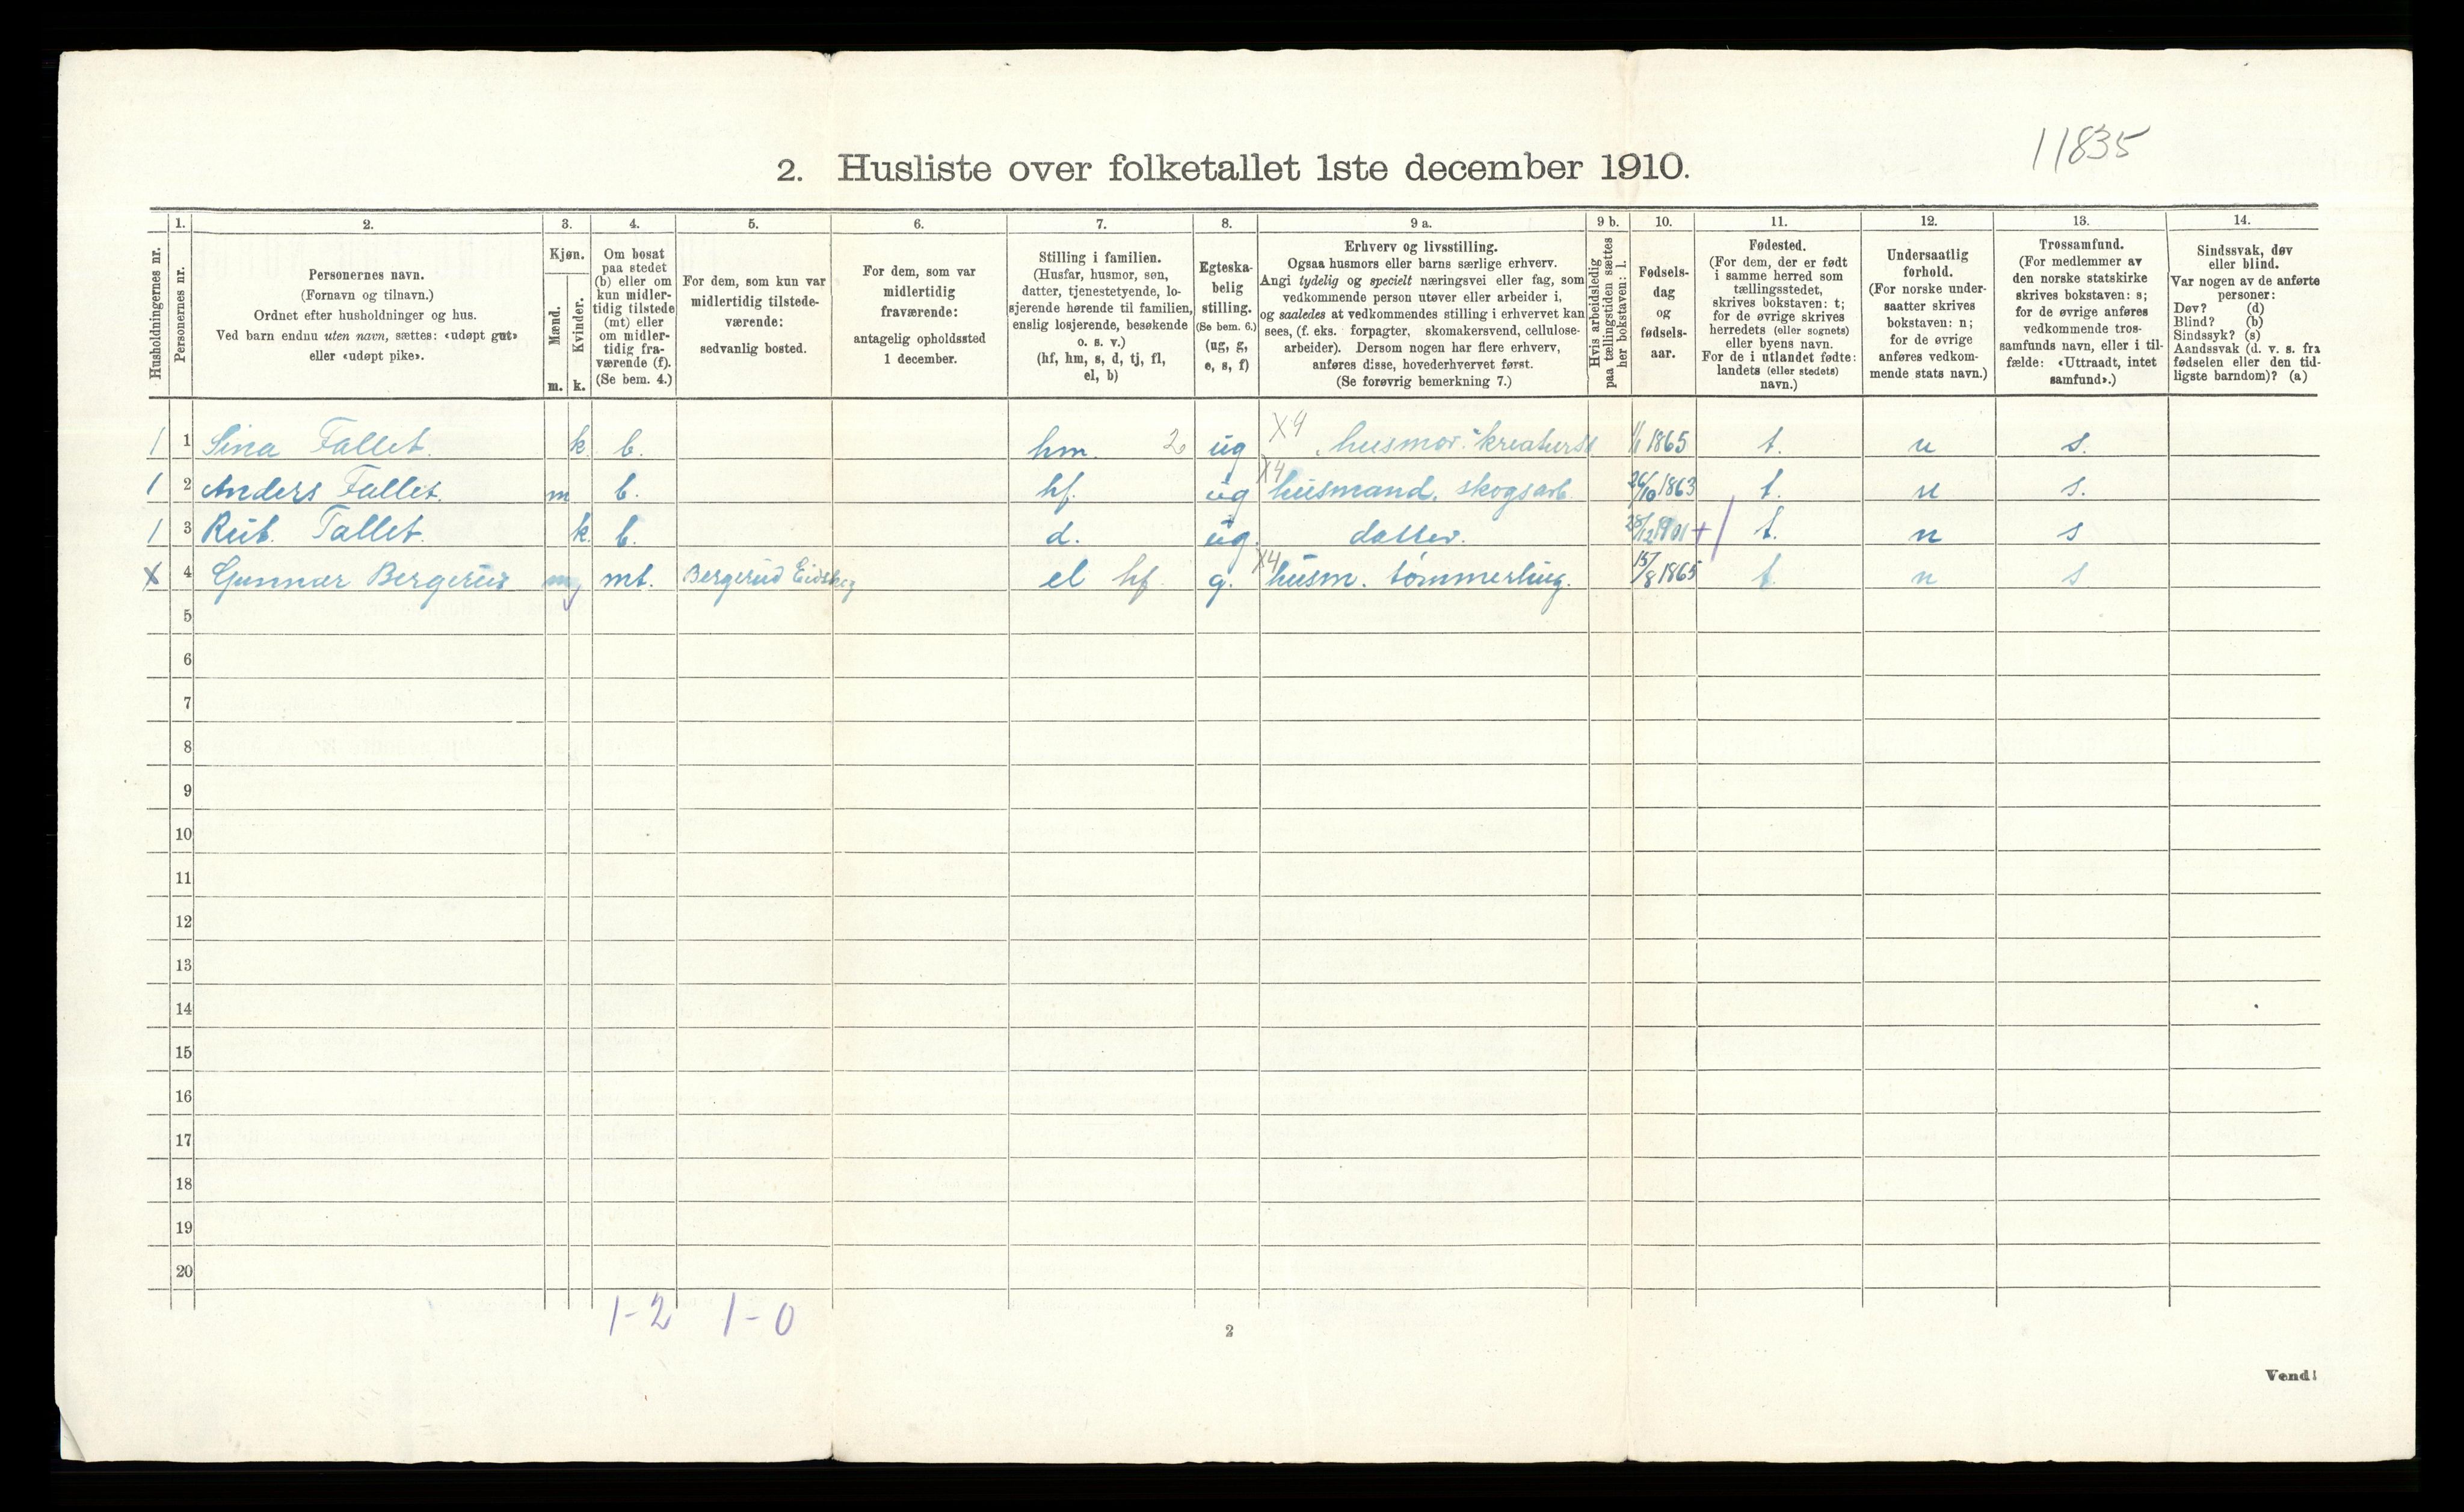 11835
2. Husliste over folketallet 1ste december 1910.
Husholdningernes nr.
1.
Personernes nr.
2.
Personernes navn.
(Fornavn og tilnavn.)
Ordnet efter husholdninger og hus.
Ved barn endnu uten navn, sættes: «udøpt gut»
eller «udøpt pike».
3.
Kjøn.
Mænd.
m.
Kvinder.
k.
4.
Om bosat
paa stedet
(b) eller om
kun midler-
tidig tilstede
(mt) eller
om midler-
tidig fra-
værende (f).
(Se bem. 4.)
5.
For dem, som kun var
midlertidig tilstede-
værende:
sedvanlig bosted.
6.
For dem, som var
midlertidig
fraværende:
antagelig opholdssted
1 december.
7.
Stilling i familien.
(Husfar, husmor, søn,
datter, tjenestetyende, lo-
sjerende hørende til familien,
enslig losjerende, besøkende
o. s. v.)
(hf, hm, s, d, tj, fl,
el, b)
8.
Egteska-
belig
stilling.
(Se bem. 6.)
(ug, g,
e, s, f)
9 a.
Erhverv og livsstilling.
Ogsaa husmors eller barns særlige erhverv.
Angi tydelig og specielt næringsvei eller fag, som
vedkommende person utøver eller arbeider i,
og saaledes at vedkommendes stilling i erhvervet kan
sees, (f. eks. forpagter, skomakersvend, cellulose-
arbeider). Dersom nogen har flere erhverv,
anføres disse, hovederhvervet først.
(Se forøvrig bemerkning 7.)
9 b.
Hvis arbeidsledig
paa tællingstiden sættes
her bokstaven: l.
10.
Fødsels-
dag
og
fødsels-
aar.
11.
Fødested.
(For dem, der er født
i samme herred som
tællingsstedet,
skrives bokstaven: t;
for de øvrige skrives
herredets (eller sognets)
eller byens navn.
For de i utlandet fødte:
landets (eller stedets)
navn.)
12.
Undersaatlig
forhold.
(For norske under-
saatter skrives
bokstaven: n;
for de øvrige
anføres vedkom-
mende stats navn.)
13.
Trossamfund.
(For medlemmer av
den norske statskirke
skrives bokstaven: s;
for de øvrige anføres
vedkommende tros-
samfunds navn, eller i til-
fælde: «Uttraadt, intet
samfund».)
14.
Sindssvak, døv
eller blind.
Var nogen av de anførte
personer:
Døv? (d)
Blind? (b)
Sindssyk? (s)
Aandssvak (d. v. s. fra
fødselen eller den tid-
ligste barndom)? (a)
1 1 Sina Fallet. k. b. hm. 2 ug X4 husmor. kreaturst 1/1 1865 t. n s.
1 2 Anders Fallet. m b. hf. ug X4 husmand. skogsarb. 26/10 1863 t. n s.
1 3 Rut. Fallet. k. b. d. ug. datter. 25/12 1901 + t. n s
X 4 Gunnar Bergerud m mt. Bergerud Eidskog el hf. g. X4 husm. tømmerhug. 15/8 1865 t. n s
5
6
7
8
9
10
11
12
13
14
15
16
17
18
19
20
1-2 1-0
2
Vend!